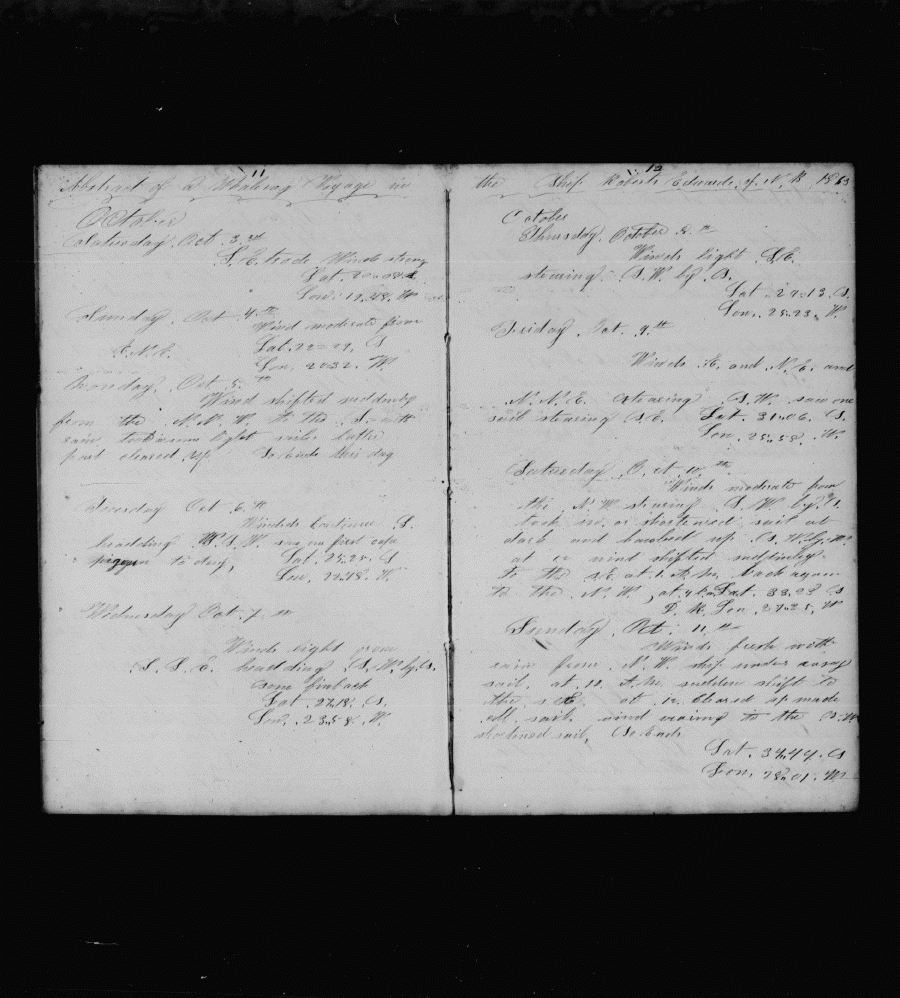 11
Abstract of a Whaleing Voyage in
October
Saturday Oct. 3rd
S.E. trade Winds strong
Lat. S
Lon. W
Sunday Oct 4th
Wind moderate from
E.N.E. Lat. 22=29. S
Lon. W.
Monday Oct. 5th
Wind shifted suddenly
from the N.N.W. to the S. with
rain latter
part cleared up So Ends this day
Tuesday Oct 6th
Winds Continue S.
headding W.S.W. saw our first cape
pigeon to day, Lat. 25.25. S
Lon, W.
Wednesday Oct. 7th
Winds eight from
S.S.E. headding S.W. by S.
som finback
Lat. 27.18. S
Lon. 23.58. W.
12
the Ship Roberts Edwards of N.B. 1863
October
Thursday October 8th
Winds light S.E.
stearing S.W. by S.
Lat. 29.13. S.
Lon. 25.23. W.
Friday Oct. 9th
Winds E. and N.E. and
N.N.E. stearing S.W. saw one
sail stearing S.E. Lat. 31.06. S.
Lon. 25.58. W.
Saturday Oct. 10th
Winds moderate from
the N.W. stearing S.W. by
took in or shortened sail at
dark and up S.W. by W.
at wind shifted suddinley
to the S.E. at 1. A.M. back again
to the N.W, at Lat. 33.23 S
Lon. 27.25, W
Sunday Oct. 11th
Winds fresh with
rain from N.W. ship under
sail, at 10. A.M. sudden shift to
the S.E. at 12. cleared up made
all sail. wind to the S.W
shortened sail, So Ends
Lat. 34.44. S
Lon. 28.01. W